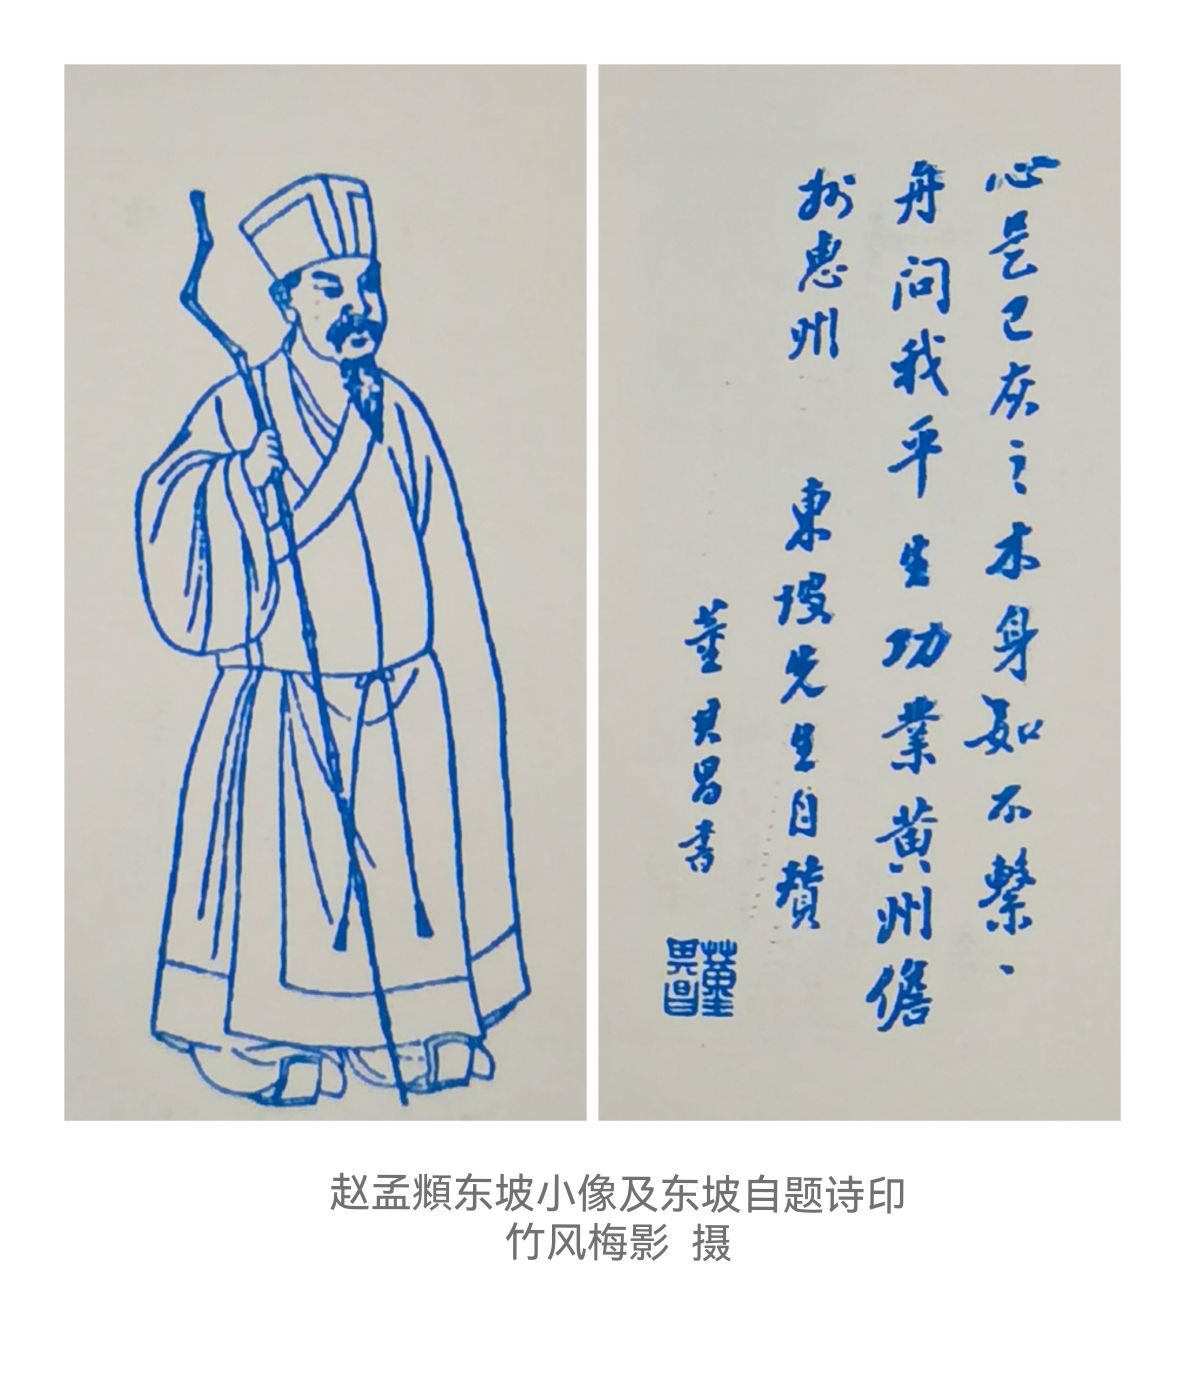 心是已灰之木身如不繫之
舟問我平生功業黄州儋
州惠州 東坡先生自贊
董其昌書
董其昌
赵孟頫东坡小像及东坡自题诗印
竹风梅影 摄